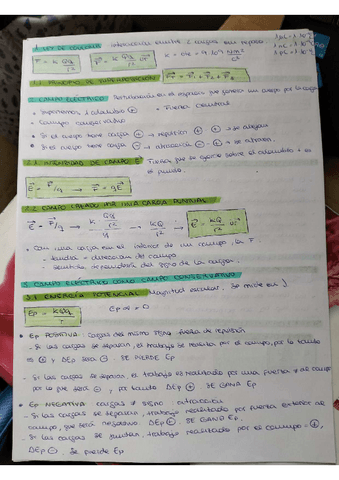 1. LEY DE COULOMB interacción entre 2 cargas en reposo
F = K Qq/r² K = cte = 9·10⁹ Nm²/C²
1.1 PRINCIPIO DE SUPERPOSICIÓN
2. CAMPO ELÉCTRICO Perturbación en el espacio que genera un cuerpo por la carga
Campo conservativo
• Si el cuerpo tiene carga ⊕ → repulsión ⊕ ⊕ → se alejan
• Si el cuerpo tiene carga ⊖ → atracción ⊖ ⊕ → se atraen
2.1. INTENSIDAD DE CAMPO Fuerza que se ejerce sobre el
el punto.
E = F/q → F = qE
2.2 CAMPO CREADO POR UNA CARGA PUNTUAL
E = F/q → → KQ/r² → E = KQ/r² ur
• Con una carga en el interior de un campo, la F:
- tendrá = dirección del campo
- sentido dependerá del signo de la carga.
3. CAMPO ELÉCTRICO COMO CAMPO CONSERVATIVO
3.1 ENERGÍA POTENCIAL Magnitud escalar. Se mide en J
Ep = KQq/r Ep ∞ = 0
• Ep POSITIVA: cargas del mismo signo, fuerza de repulsión
- Si las cargas se separan, el trabajo se realiza por el campo, por lo tanto
ΔEp será ⊖ - SE PIERDE Ep
- Si las cargas se acercan, el trabajo es realizado por una fuerza ≠ al campo
por lo que será ⊖, por tanto ΔEp ⊕. SE GANA Ep
• Ep NEGATIVA: cargas ≠ signo, atracción
- Si las cargas se separan, trabajo realizado por fuerza externa al
campo, que será negativo. ΔEp ⊕. SE GANA Ep
- Si las cargas se juntan, trabajo realizado por el campo = ⊕,
ΔEp ⊖. Se pierde Ep